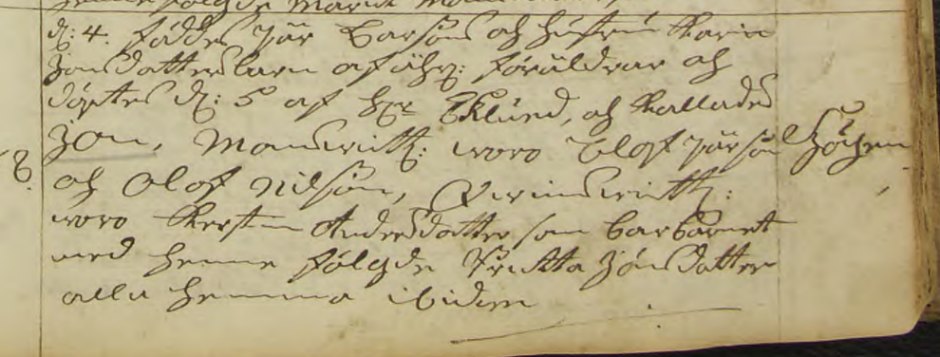 henne fölgde Marit
d: 4. föddes Pär Larsons och hustru Karin
Jonsdotters barn af ächt: föräldrar och
döptes d: 5 af Hr Eklund, och kallades
8. Jon, Manswittn: woro Olof Pärson
och Olof Nilson, Qwinswittn:
woro Kerstin Andersdotter som bar barnet
med henne fölgde Britta Jönsdotter
alla hemma ibidem